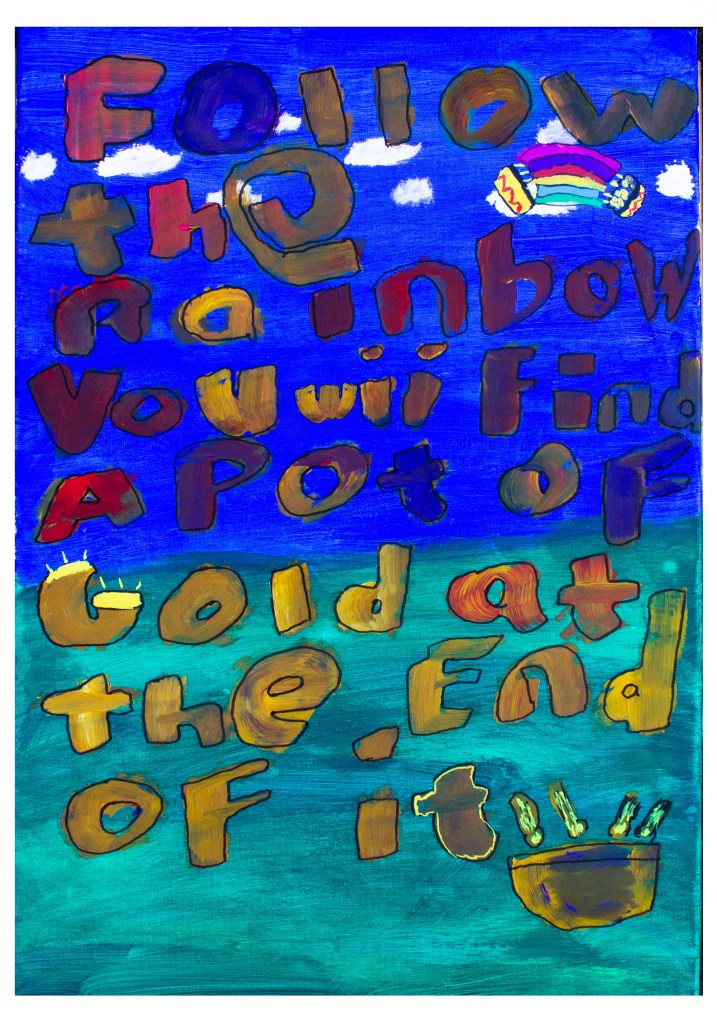 Follow
the
Rainbow
You wii Find
A Pot oF
Gold at
the End
OF it